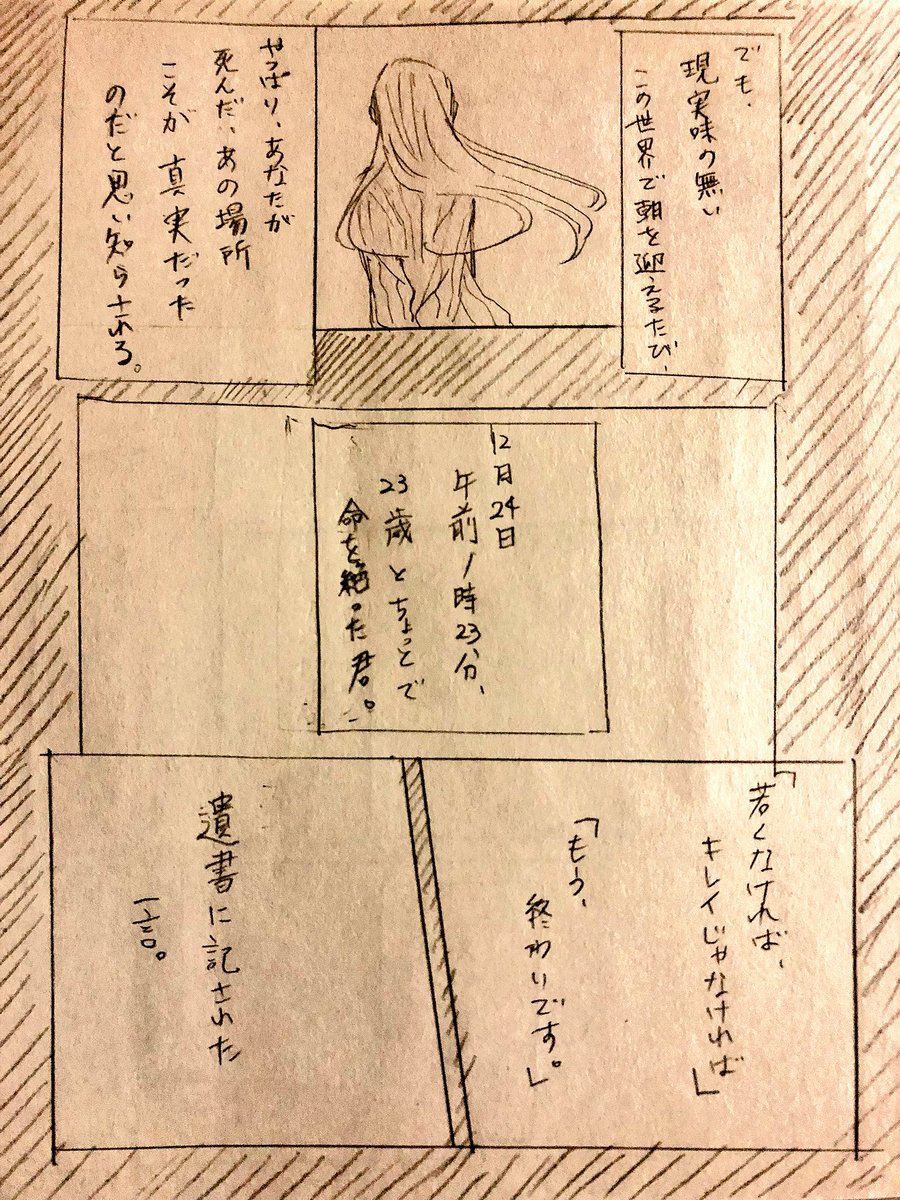 でも、
現実味の無い
この世界で朝を迎えるたび、
やっぱり、あなたが
死んだ、あの場所
こそが真実だった
のだと思い知らされる。
12月24日
午前1時23分、
23歳とちょっとで
命を絶った君。
「若くなければ、
キレイじゃなければ」
「もう、
終わりです。」
遺書に記された
一言。